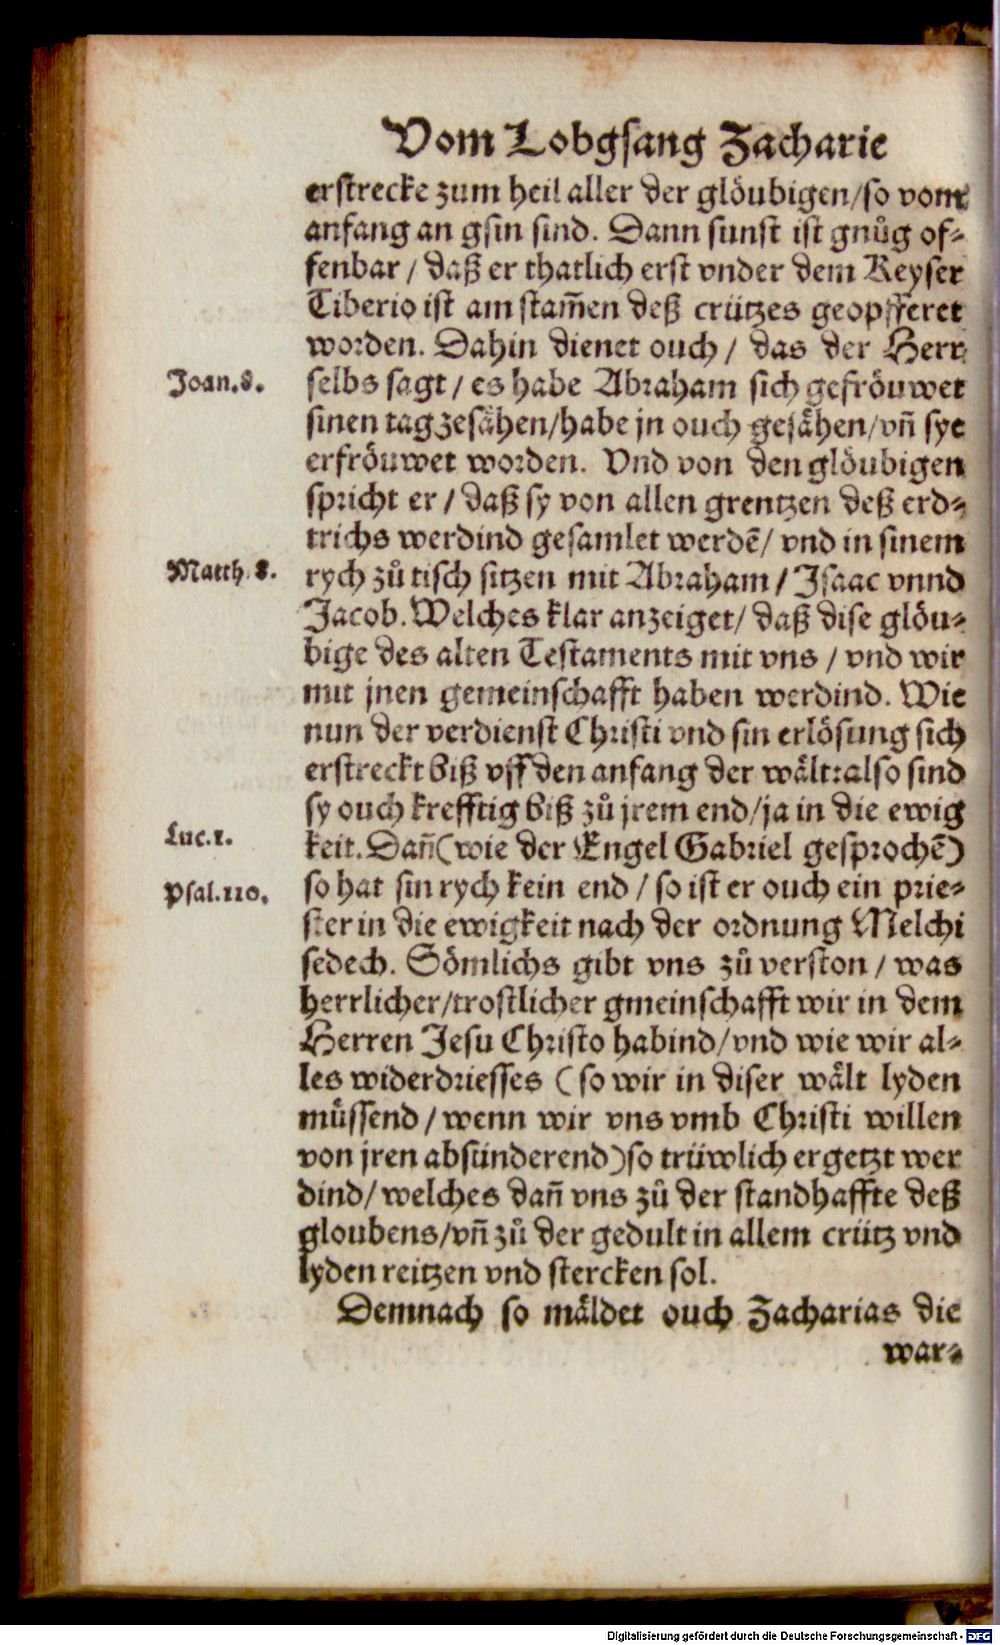 Vom Lobgsang Zacharie
erstrecke zum heil aller der glöubigen/so vom
anfang an gsin sind. Dann sunst ist gnůg of⸗
fenbar / daß er thatlich erst vnder dem Keyser
Tiberio ist am stam̃en deß crützes geopfferet
worden. Dahin dienet ouch / das der Herr
Joan.8.
selbs sagt / es habe Abraham sich gefröuwet
sinen tag zesåhen/habe jn ouch gesåhen/vñ sye
erfröuwet worden. Vnd von den glöubigen
spricht er / daß sy von allen grentzen deß erd⸗
trichs werdind gesamlet werdẽ/ vnd in sinem
Matth.8.
rych zů tisch sitzen mit Abraham / Isaac vnnd
Jacob. Welches klar anzeiget/ daß dise glöu⸗
bige des alten Testaments mit vns / vnd wir
mit jnen gemeinschafft haben werdind. Wie
nun der verdienst Christi vnd sin erlösung sich
erstreckt biß vff den anfang der wålt:also sind
sy ouch krefftig biß zů jrem end/ja in die ewig
Luc.1.
keit. Dañ(wie der Engel Gabriel gesprochẽ)
Psal.110.
so hat sin rych kein end / so ist er ouch ein prie⸗
ster in die ewigkeit nach der ordnung Melchi
sedech. Sömlichs gibt vns zů verston / was
herrlicher/trostlicher gmeinschafft wir in dem
Herren Jesu Christo habind/vnd wie wir al⸗
les widerdriesses (so wir in diser wålt lyden
müssend / wenn wir vns vmb Christi willen
von jren absünderend)so trüwlich ergetzt wer
dind/welches dañ vns zů der standhaffte deß
gloubens/vñ zů der gedult in allem crütz vnd
lyden reitzen vnd stercken sol.
Demnach so måldet ouch Zacharias die
war⸗
Digitalisierung gefördert durch die Deutsche Forschungsgemeinschaft - DFG